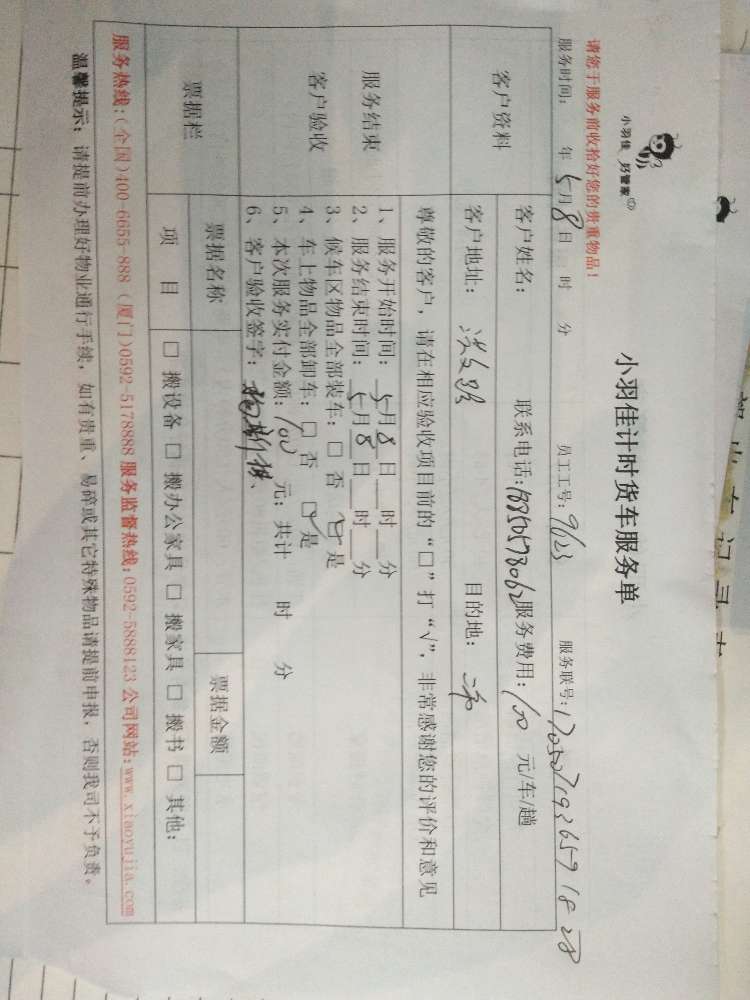 小羽佳 好管家
小羽佳计时货车服务单
请您于服务前收拾好您的贵重物品!
服务时间: 年 5月 8日 时 分 员工工号: 9623 服务联号: 170507193659 18 28
客户资料 客户姓名: 联系电话: 服务费用: 100 元/车/趟
客户地址: 目的地:
服务结束客户验收
尊敬的客户, 请在相应验收项目前的“□”打“√”, 非常感谢您的评价和意见
1、服务开始时间: 5月8日 时 分
2、服务结束时间: 5月8日 时 分
3、候车区物品全部装车: □ 否 ☑ 是
4、车上物品全部卸车: □ 否 ☑ 是
5、本次服务实付金额: 100 元; 共计 时 分
6、客户验收签字:
票据栏 票据名称 票据金额
项 目 □ 搬设备 □ 搬办公家具 □ 搬家具 □ 搬书 □ 其他:
服务热线:(全国)400-6655-888 (厦门)0592-5178888 服务监督热线: 0592-5888123 公司网站: www.xiaoyujia.com
温馨提示: 请提前办理好物业通行手续, 如有贵重、易碎或其它特殊物品请提前申报, 否则我司不予负责。